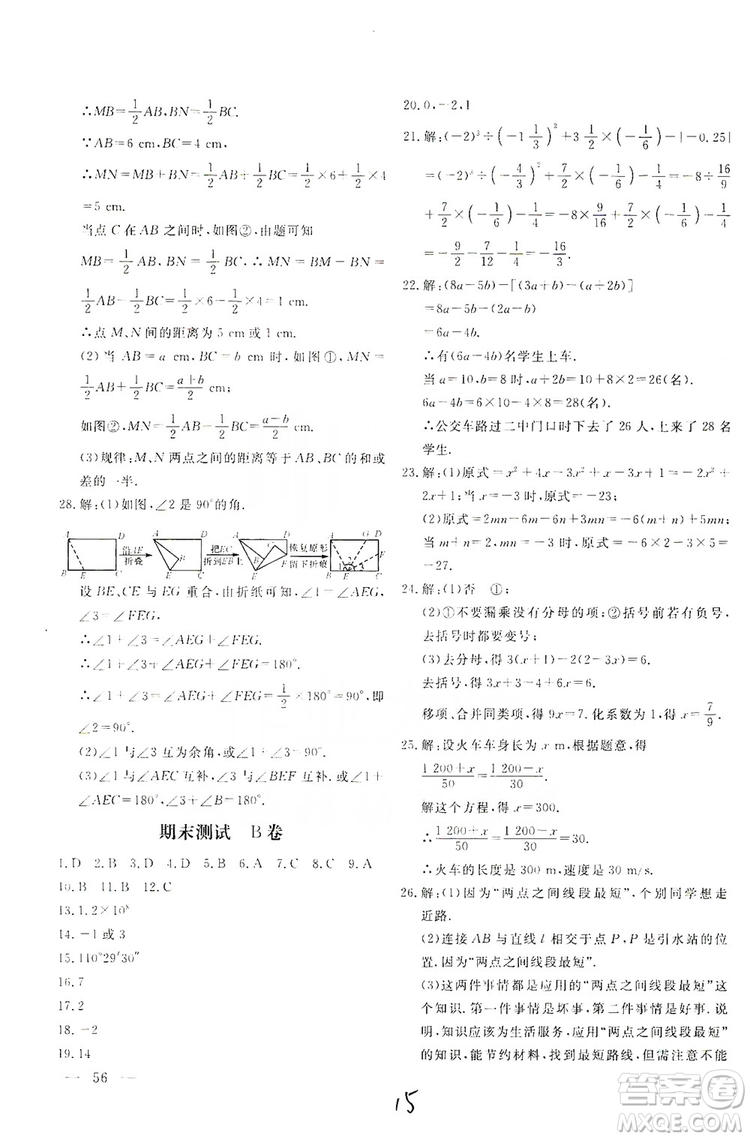 ∴MB=1/2 AB,BN=1/2 BC.
∵AB=6 cm,BC=4 cm,
∴MN=MB+BN=1/2 AB+1/2 BC=1/2×6+1/2×4
=5 cm.
当点 C 在 AB 之间时,如图②,由题可知
MB=1/2 AB,BN=1/2 BC.∴MN=MB-BN=
1/2 AB-1/2 BC=1/2×6-1/2×4=1 cm,
∴点 M、N 间的距离为 5 cm 或 1 cm.
(2)当 AB=a cm,BC=b cm 时,如图①,MN=
1/2 AB+1/2 BC=(a+b)/2 cm;
如图②,MN=1/2 AB-1/2 BC=(a-b)/2 cm.
(3)规律:M、N 两点之间的距离等于两条线段和或
差的一半.
28.解:(1)如图,∠2 是 90°的角.
沿AE 折叠
把EC 折到EB上
恢复原形 留下折痕
设 BE、CE 与 EG 重合,由折纸可知∠1=∠AEG,
∠3=∠FEG.
∴∠1+∠3=∠AEG+∠FEG.
∵∠1+∠3+∠AEG+∠FEG=180°,
∴∠1+∠3=∠AEG+∠FEG=1/2×180°=90°,即
∠2=90°.
(2)∠1 与∠3 互为余角,或∠1+∠3=90°.
(3)∠1 与∠AEC 互补,∠3 与∠BEF 互补.或∠1+
∠AEC=180°,∠3+∠BEF=180°.
期末测试 B卷
1.D 2.B 3.D 4.D 5.B 6.A 7.C 8.C 9.A
10.B 11.B 12.C
13.1.2×10⁸
14.-1或3
15.110°29′30″
16.7
17.2
18.-2
19.14
— 56 —
20.0,-2,1
21.解:(-2)³÷(-1 1/3)²+3 1/2×(-1/6)-|-0.25|
=(-2)³÷(-4/3)²+7/2×(-1/6)-1/4=-8÷16/9
+7/2×(-1/6)-1/4=-8×9/16+7/2×(-1/6)-1/4
=-9/2-7/12-1/4=-16/3.
22.解:(8a-5b)-[(3a+b)-(a+2b)]
=8a-5b-(2a-b)
=6a-4b.
∴有(6a-4b)名学生上车.
当 a=10,b=8 时,2a+b=2×10-8=26(名).
6a-4b=6×10-4×8=28(名).
∴公交车路过二中门口时下去了 26 人,上来了 28 名
学生.
23.解:(1)原式=x²+4x-x²-2x+1=x²-x²+4x-
2x+1;当x=-1时,原式=-2+1=-1.
(2)原式=2mn-6m²-m²+5mn-5m²-2mn=
-12m²+5mn,当m=1,n=-3时,原式=-12-15=
-27.
24.解:(1)否 ①;
(2)①不要漏乘没有分母的项;②括号前若有负号,
去括号时都要变号;
(3)去分母,得 3(3x+1)-2(x-1)=6.
去括号,得 9x+3-2x+2=6.
移项、合并同类项,得 9x=7.化系数为 1,得 x=7/9.
25.解:设火车车身长为 x m,根据题意,得
(1 200+x)/50=(1 200-x)/30,
解这个方程,得 x=300.
∴(1 200+x)/50=(1 200+x)/50=30.
∴火车的长度是 300 m,速度是 30 m/s.
26.解:(1)因为“两点之间线段最短”,个别同学想走
近路.
(2)连接 AB 与直线 l 相交于点 P,P 是引水站的位
置.因为“两点之间线段最短”;
(3)这两件事情都是应用的“两点之间线段最短”这
个知识.第一件事情是坏事,第二件事情是好事.说
明,知识应该为生活服务,应用“两点之间线段最短”
的知识,能节约材料,找到最短路线,但需注意不能
15
答案圈
MXQE.COM